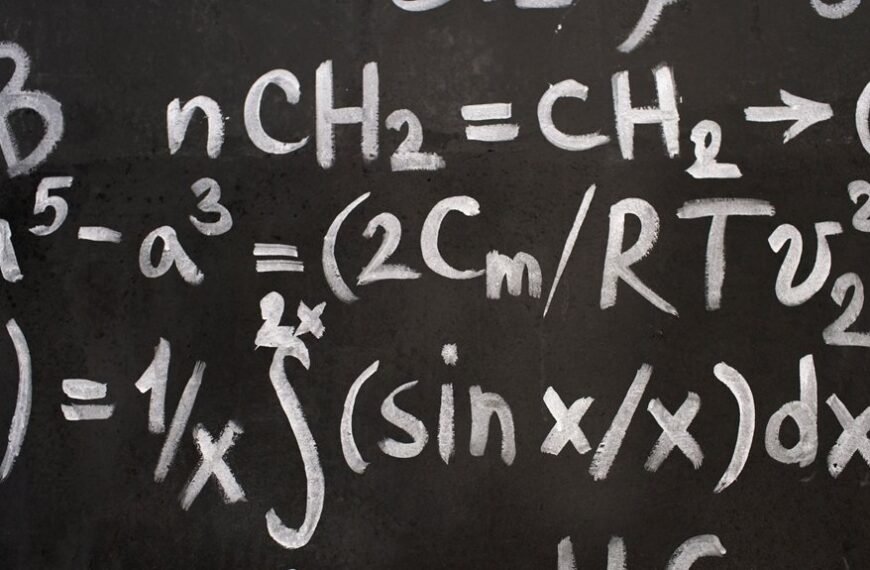 B nCH₂=CH₂→
a⁵-a³=(2Cm/RTv₂²
)=1/x∫²ˣ(sin x/x)dx